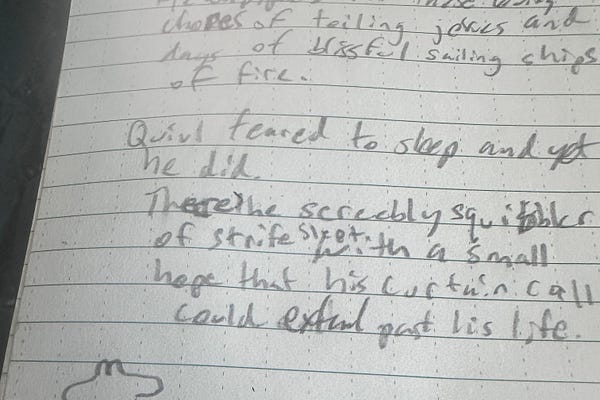 chores of telling jokes and
days of blissful sailing ships
of fire.
Quivl feared to sleep and yet
he did.
There the screebly squibbler
of strife slept with a small
hope that his curtain call
could extend past his life.